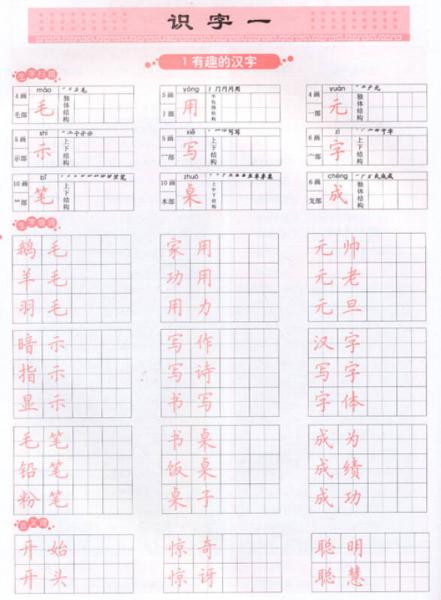 识字一
1 有趣的汉字
生字扫描
4画 máo 毛 独体结构
毛部
5画 yòng 用 半包围结构
丿部
4画 yuán 元 独体结构
一部
5画 shì 示 上下结构
示部
5画 xiě 写 上下结构
冖部
6画 zì 字 上下结构
宀部
10画 bǐ 笔 上下结构
⺮部
10画 zhuō 桌 上中下结构
木部
6画 chéng 成 独体结构
戈部
鹅毛 家用 元帅
羊毛 功用 元老
羽毛 用力 元旦
暗示 写作 汉字
指示 写诗 写字
显示 书写 字体
毛笔 书桌 成为
铅笔 饭桌 成绩
粉笔 桌子 成功
开始 惊奇 聪明
开头 惊讶 聪慧